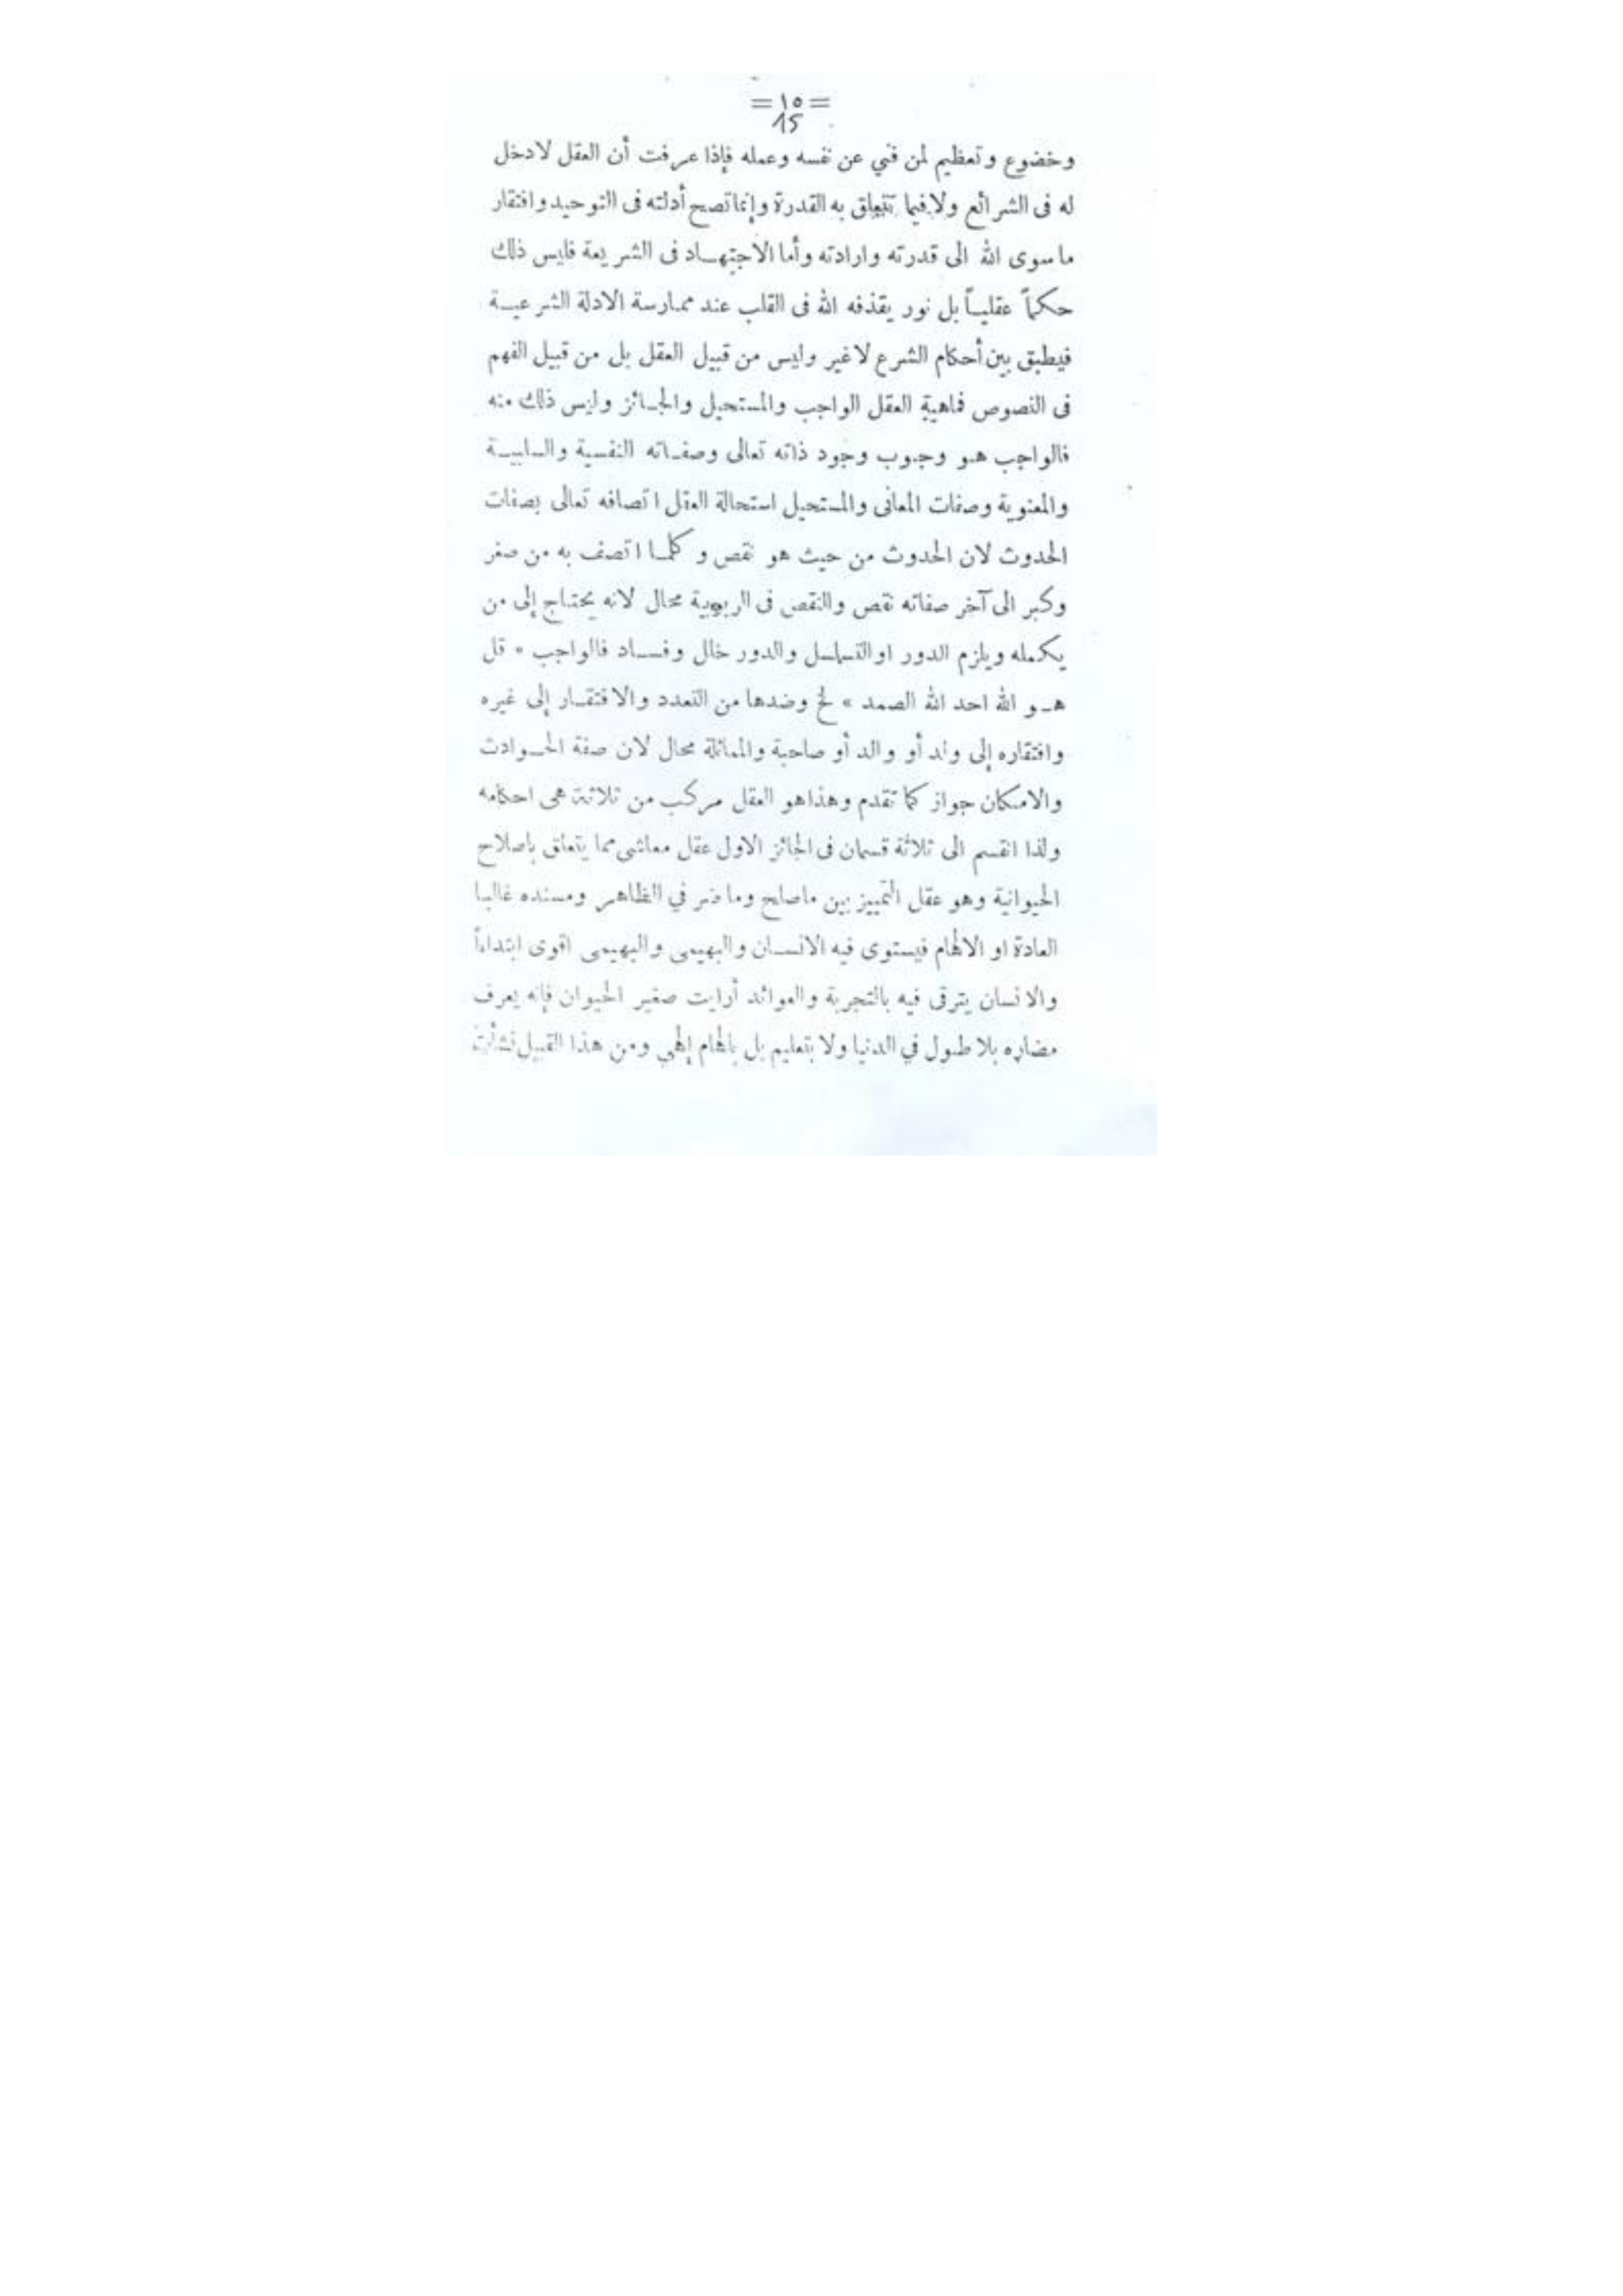 = ١٥ =
15
وخضوع وتعظيم لمن فني عن نفسه وعمله فإذا عرفت أن العقل لادخل
له فى الشرائع ولافيما تتعلق به القدرة وإنما تصح أدلته فى التوحيد وافتقار
ما سوى الله الى قدرته وارادته وأما الاجتهاد فى الشريعة فليس ذلك
حكماً عقلياً بل نور يقذفه الله فى القلب عند ممارسة الادلة الشرعية
فيطبق بين أحكام الشرع لاغير وليس من قبيل العقل بل من قبيل الفهم
فى النصوص فماهية العقل الواجب والمستحيل والجائز وليس ذلك منه
فالواجب هو وجوب وجود ذاته تعالى وصفاته النفسية والسلبية
والمعنوية وصفات المعانى والمستحيل استحالة العقل اتصافه تعالى بصفات
الحدوث لان الحدوث من حيث هو نقص وكلما اتصف به من صغر
وكبر الى آخر صفاته نقص والنقص فى الربوبية محال لانه يحتاج إلى من
يكمله ويلزم الدور او التسلسل والدور خلل وفساد فالواجب « قل
هو الله احد الله الصمد » لخ وضدها من التعدد والافتقار إلى غيره
وافتقاره إلى ولد أو والد أو صاحبة والمماثلة محال لان صفة الحوادث
والامكان جواز كما تقدم وهذا هو العقل مركب من ثلاثة هى احكامه
ولذا انقسم الى ثلاثة قسمان فى الجائز الاول عقل معاشى مما يتعلق باصلاح
الحيوانية وهو عقل التمييز بين ماصلح وماضر في الظاهر ومسنده غالبا
العادة او الالهام فيستوى فيه الانسان والبهيمى والبهيمى اقوى ابتداءاً
والانسان يترقى فيه بالتجربة والعوائد أرايت صغير الحيوان فإنه يعرف
مضاره بلا طول في الدنيا ولا بتعليم بل بالهام إلهي ومن هذا القبيل نشأت